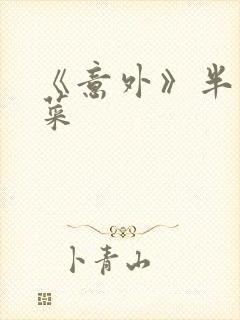 《意外》半
菜
卜青山